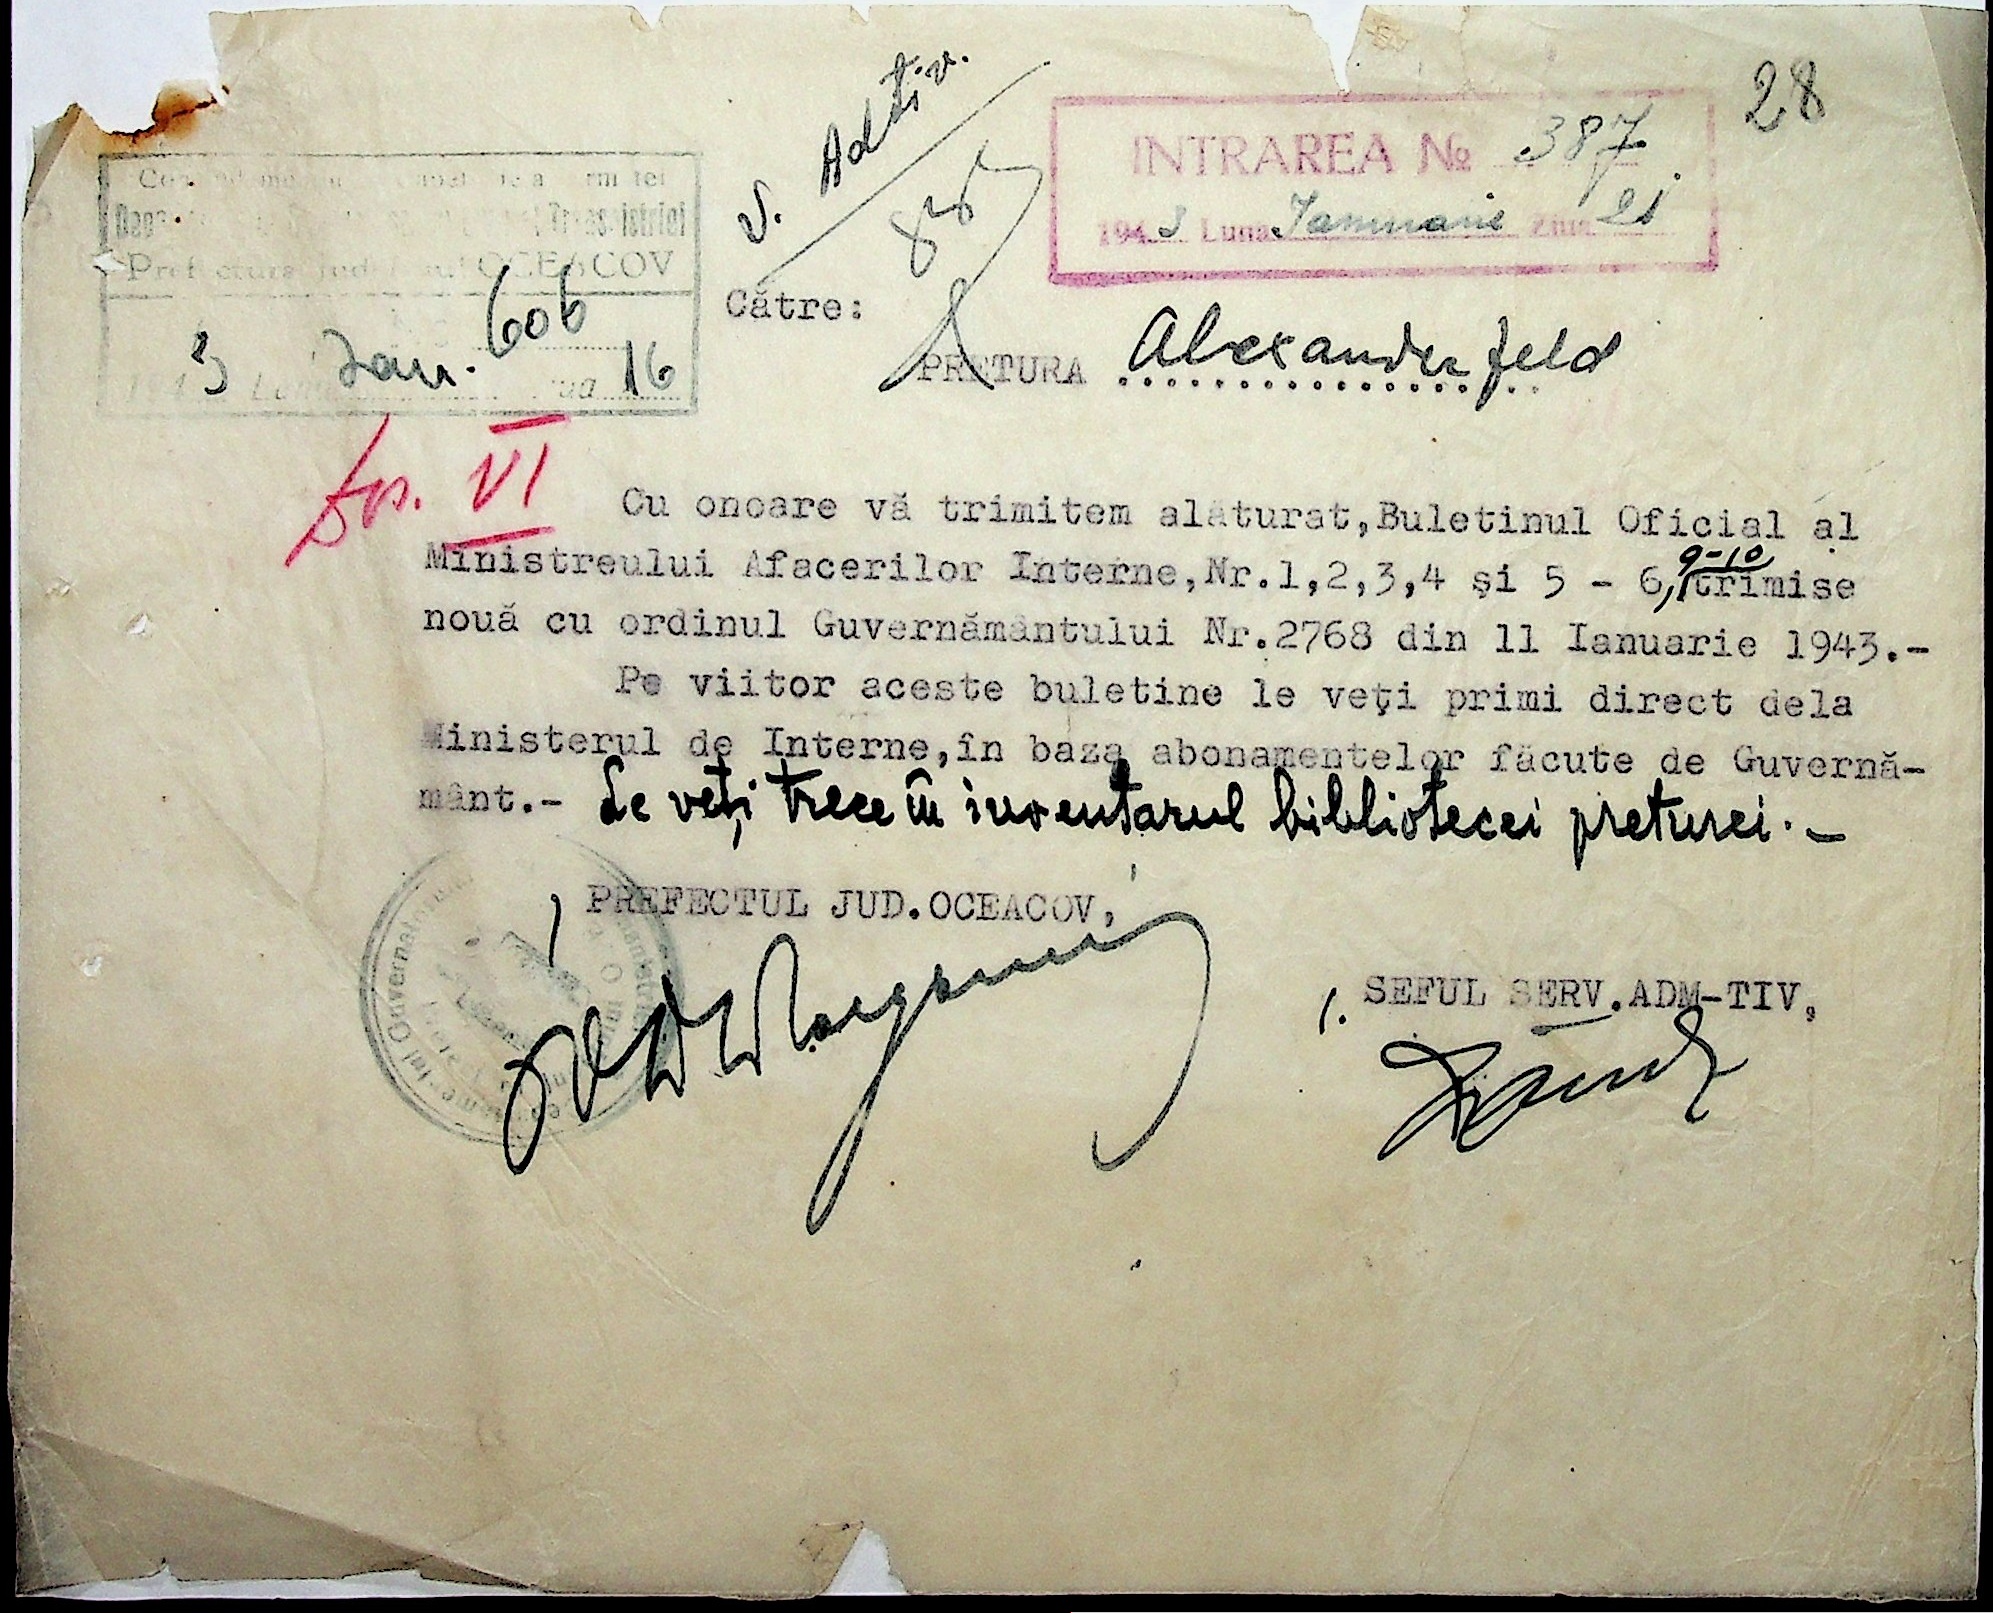 28
S. Adtiv.
INTRAREA № 387
1943 Luna Ianuarie Ziua 21
Prefectura Județului OCEACOV
606
3 Ian. 16
Către:
PRETURA Alexanderfeld
Dos. VI
Cu onoare vă trimitem alăturat,Buletinul Oficial al
Ministreului Afacerilor Interne,Nr.1,2,3,4 și 5 - 6, 9-10 trimise
nouă cu ordinul Guvernământului Nr.2768 din 11 Ianuarie 1943.-
Pe viitor aceste buletine le veți primi direct dela
Ministerul de Interne,în baza abonamentelor făcute de Guvernă-
mânt.- Le veți trece în inventarul bibliotecei preturei.-
PREFECTUL JUD.OCEACOV,
SEFUL SERV.ADM-TIV,